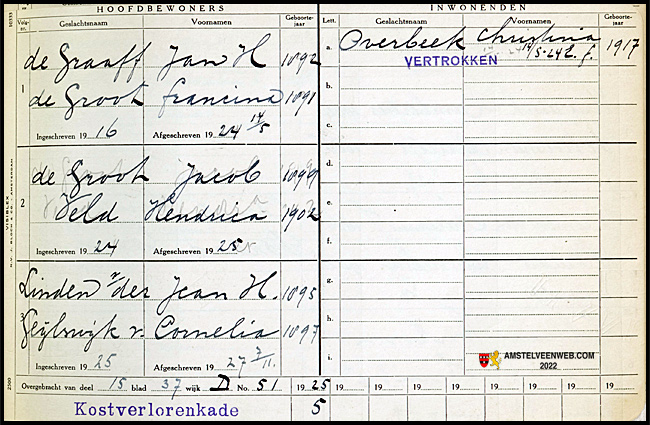 HOOFDBEWONERS INWONENDEN
Volgnr. Geslachtsnaam Voornamen Geboortejaar Lett. Geslachtsnaam Voornamen Geboortejaar
1 de Graaff Jan H 1892
de Groot Francina 1891
Ingeschreven 19 16 Afgeschreven 19 24 14/5
2 de Groot Jacob 1899
Veld Hendrica 1902
Ingeschreven 19 24 Afgeschreven 19 25
3 Linden v/der Jean H. 1895
v. Cornelia 1897
Ingeschreven 19 25 Afgeschreven 19 27 7/11.
a. Overbeek Christina 1917
VERTROKKEN 14/5-24
b.
c.
d.
e.
f.
g.
h.
i.
AMSTELVEENWEB.COM
2022
Overgebracht van deel 15 blad 37 wijk D No. 51 19 25 19 19 19 19 19 19 19 19
Kostverlorenkade 5